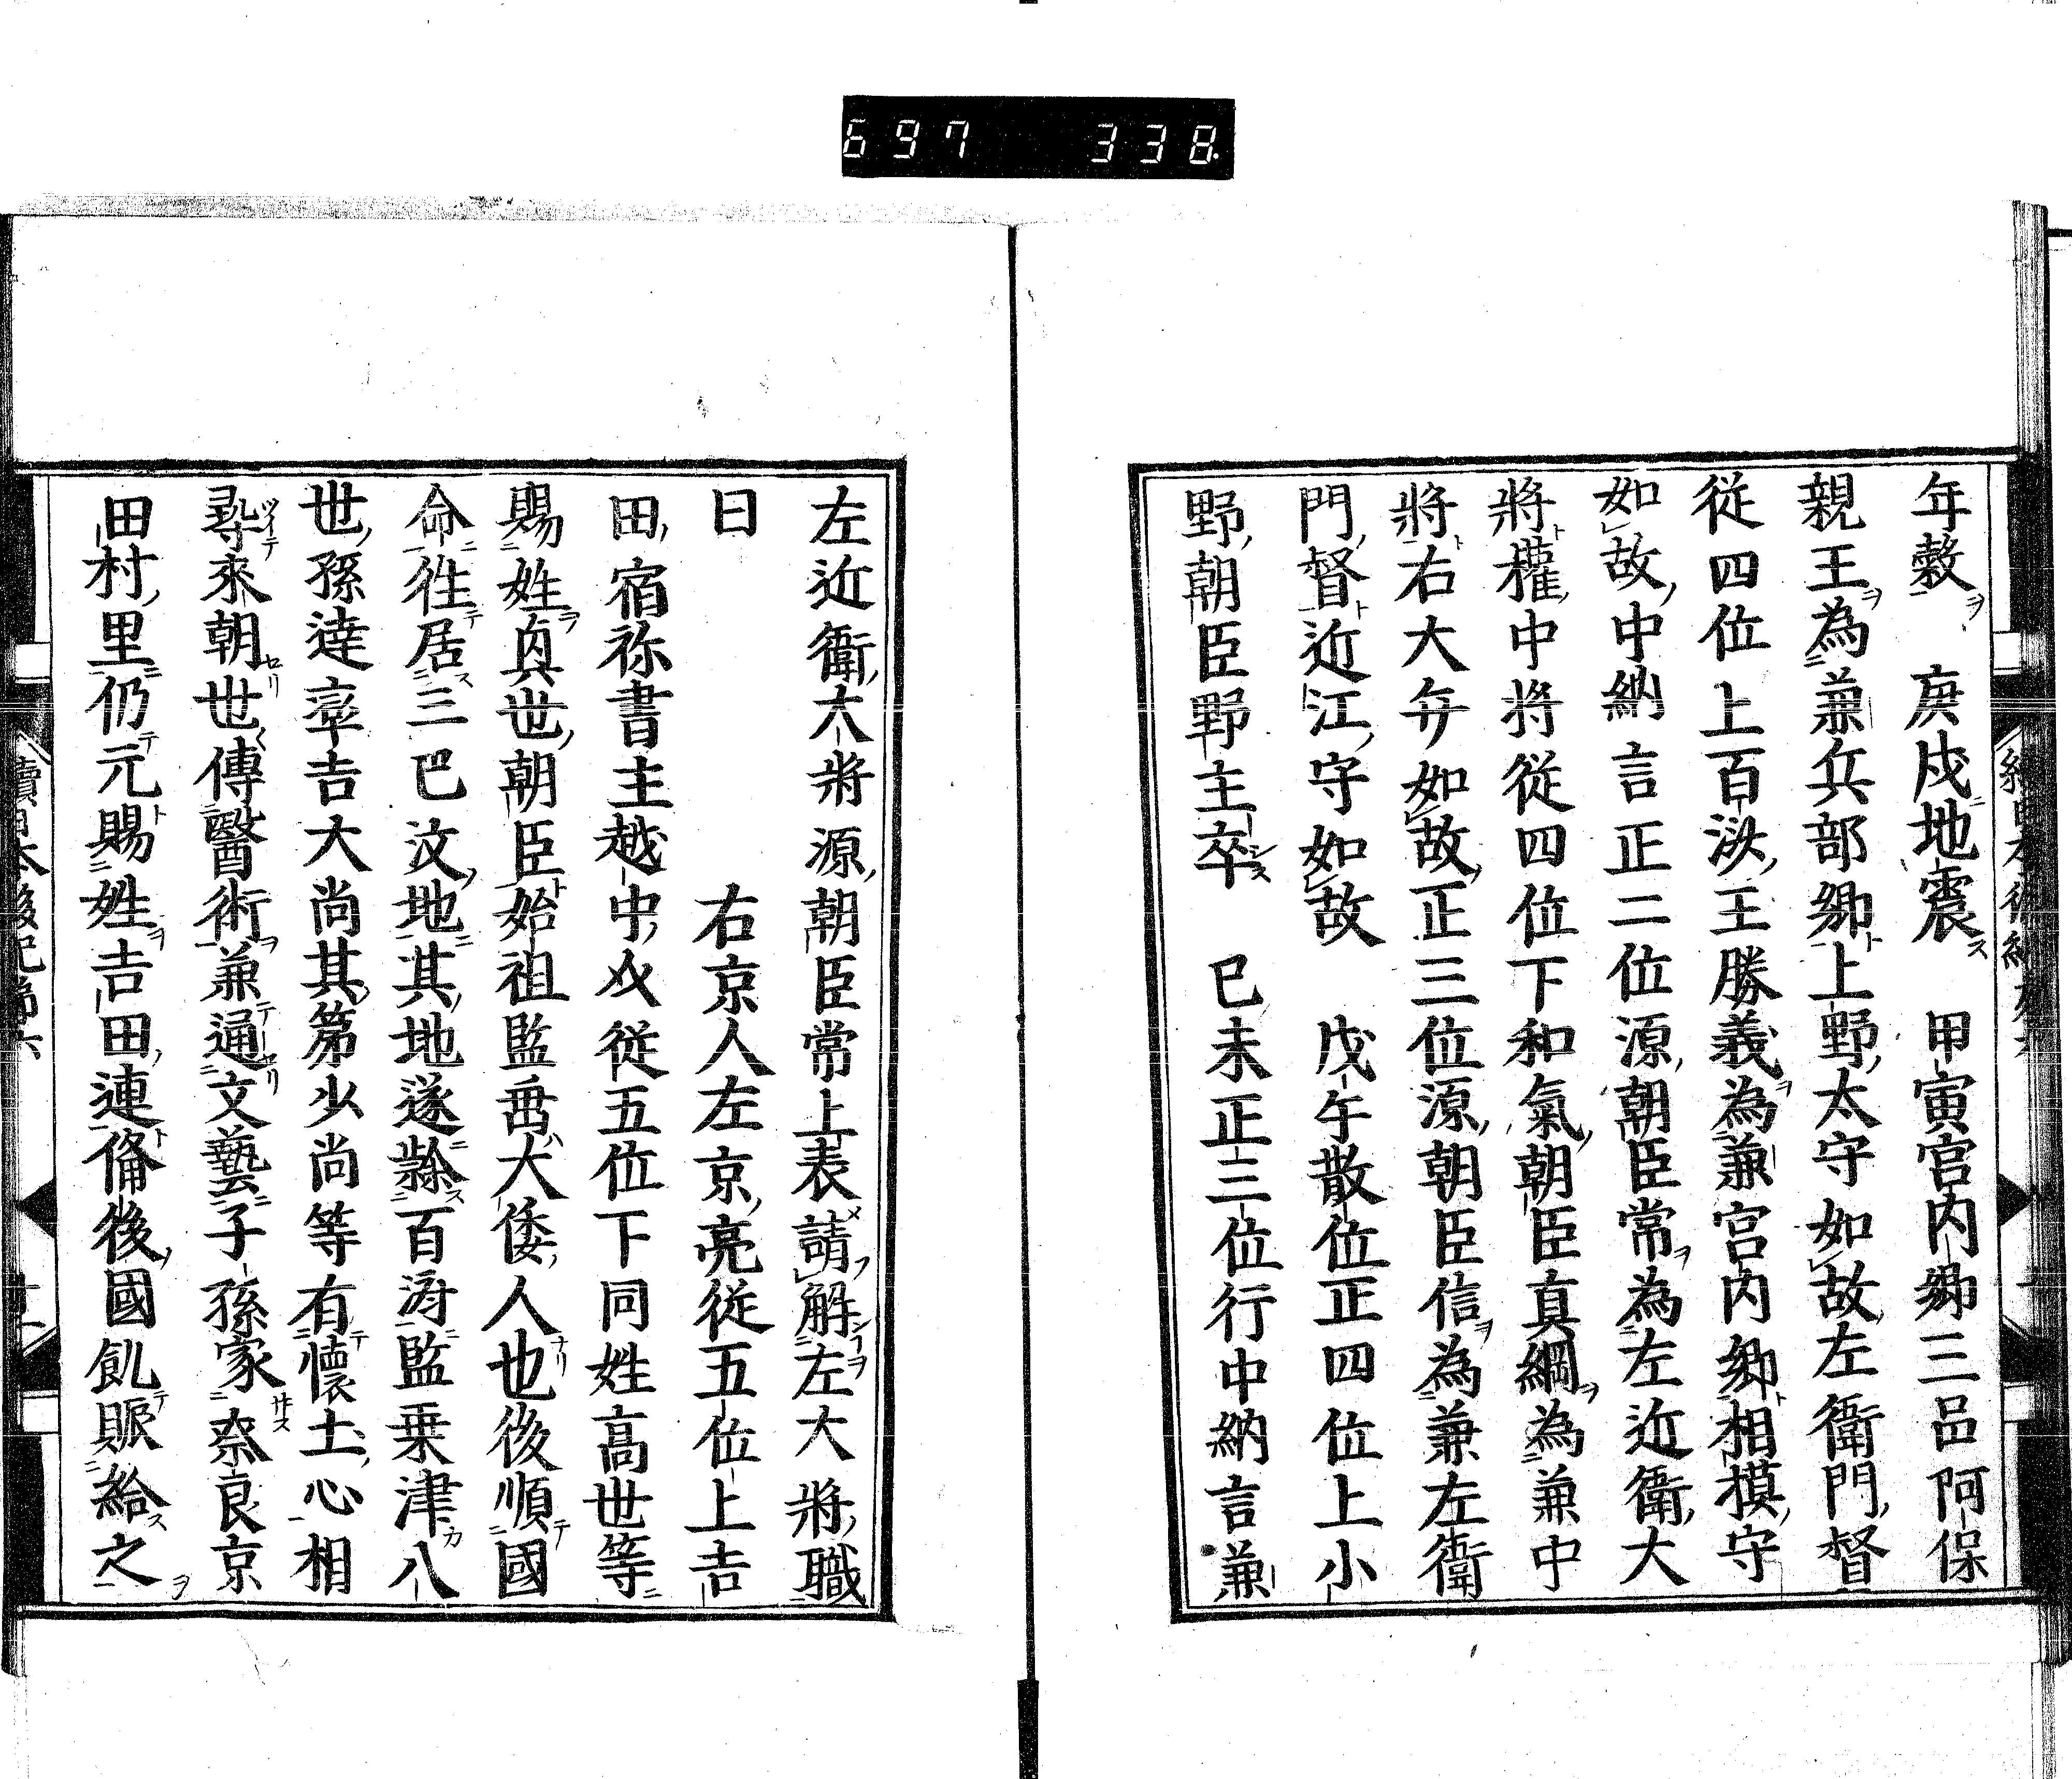 697 338
年穀 庚戌地震 甲寅宮内卿三品阿保
親王為兼兵部卿上野太守如故左衛門督
從四位上百濟王勝義為兼宮内卿相摸守
如故中納言正二位源朝臣常為左近衛大
將權中将從四位下和氣朝臣真綱為兼中
將右大弁如故正三位源朝臣信為兼左衛
門督近江守如故 戊午散位正四位上小
野朝臣野主卒 己未正三位行中納言兼
左近衛大將源朝臣常上表請解左大將職
曰 右京人左京亮從五位上吉
田宿祢書主越中从從五位下同姓高世等
賜姓真世朝臣始祖監垂大倭人也後順國
命徃居三巴汶地其地遂隷百濟監乗津八
世孫達率吉大尚其第少尚等有懷土心相
尋來朝世傳醫術兼通文藝子孫家奈良京
田村里仍元賜姓吉田連備後國飢賑給之
續日本後紀第六